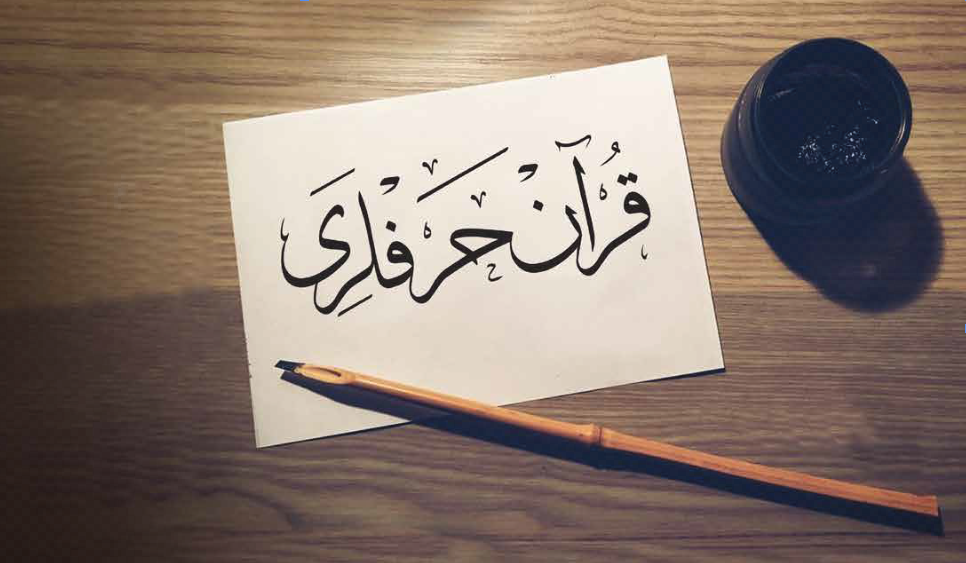 قُرآنْ حَرْفْلَرِى